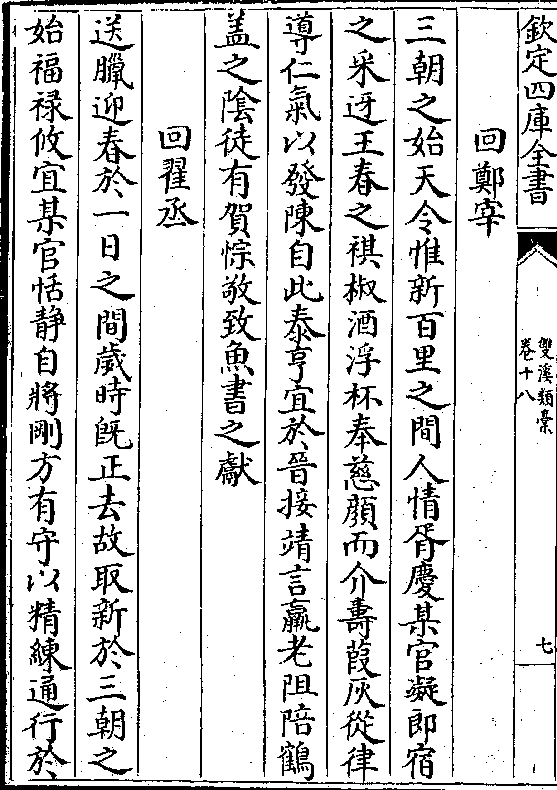 欽定四庫全書
雙溪類藁
卷十八
七
回鄭宰
三朝之始天令惟新百里之間人情胥慶某官凝郎宿
之采迓王春之祺椒酒浮杯奉慈顔而介壽葭灰從律
導仁氣以發陳自此泰亨宜於晉接靖言羸老阻陪鶴
盖之隂徒有賀悰敬致魚書之獻
回翟丞
送臘迎春於一日之間歲時旣正去故取新於三朝之
始福禄攸宜某官恬靜自將剛方有守以精練通行於